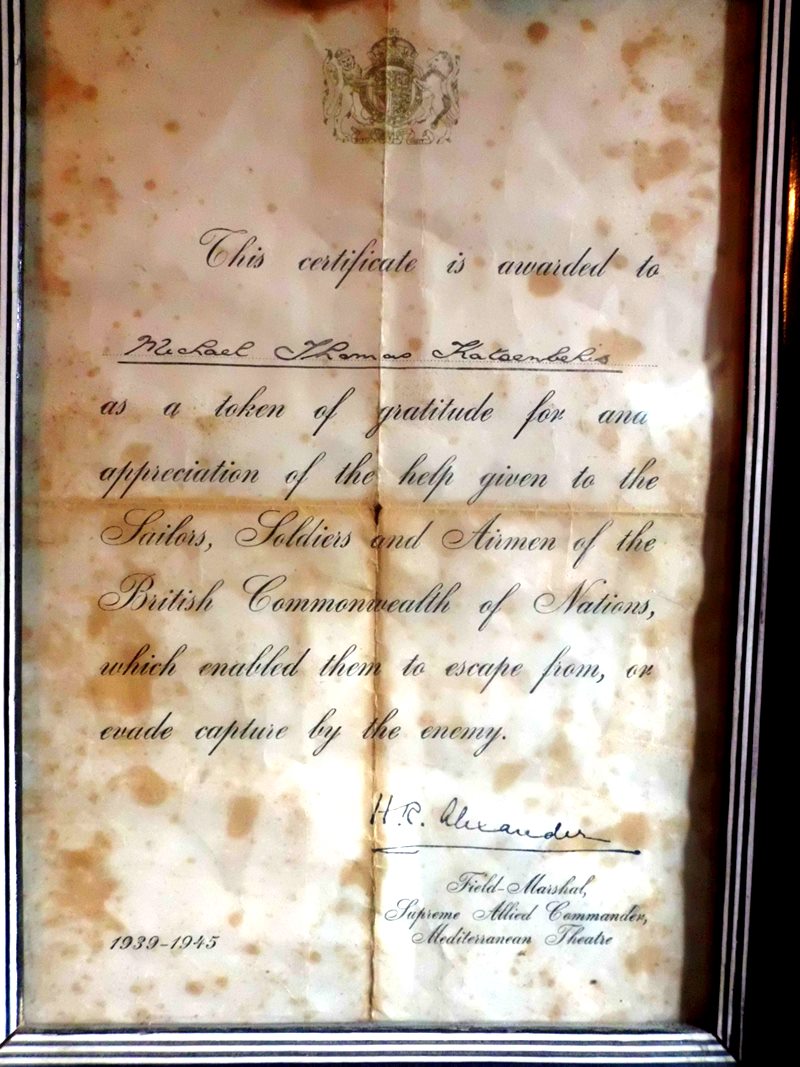 This certificate is awarded to
Michael Thomas Katsenbekis
as a token of gratitude for and
appreciation of the help given to the
Sailors, Soldiers and Airmen of the
British Commonwealth of Nations,
which enabled them to escape from, or
evade capture by the enemy.
H.R. Alexander
Field-Marshal,
Supreme Allied Commander,
Mediterranean Theatre
1939-1945